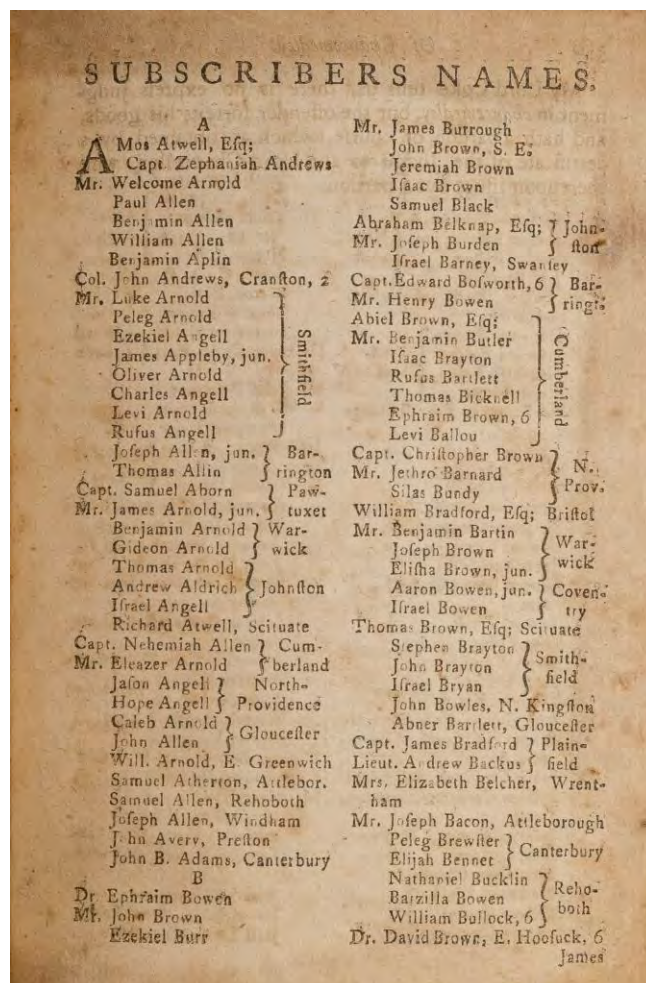 SUBSCRIBERS NAMES.
A
AMos Atwell, Eſq;
Capt. Zephaniah Andrews
Mr. Welcome Arnold
Paul Allen
Benjamin Allen
William Allen
Benjamin Aplin
Col. John Andrews, Cranſton, 2
Mr. Luke Arnold
Peleg Arnold
Ezekiel Angell
James Appleby, jun.
Oliver Arnold
Charles Angell
Levi Arnold
Rufus Angell
Smithfield
Joſeph Allen, jun. } Bar-
Thomas Allin } rington
Capt. Samuel Aborn } Paw-
Mr. James Arnold, jun. } tuxet
Benjamin Arnold } War-
Gideon Arnold } wick
Thomas Arnold
Andrew Aldrich } Johnſton
Iſrael Angell
Richard Atwell, Scituate
Capt. Nehemiah Allen } Cum-
Mr. Eleazer Arnold } berland
Jaſon Angell } North-
Hope Angell } Providence
Caleb Arnold } Glouceſter
John Allen
Will. Arnold, E. Greenwich
Samuel Atherton, Attlebor.
Samuel Allen, Rehoboth
Joſeph Allen, Windham
John Avery, Preſton
John B. Adams, Canterbury
B
Dr. Ephraim Bowen
Mr. John Brown
Ezekiel Burr
Mr. James Burrough
John Brown, S. E.
Jeremiah Brown
Iſaac Brown
Samuel Black
Abraham Belknap, Eſq; } John-
Mr. Joſeph Burden } ſton
Iſrael Barney, Swanſey
Capt. Edward Boſworth, 6 } Bar-
Mr. Henry Bowen } ringt.
Abiel Brown, Eſq;
Mr. Benjamin Butler
Iſaac Brayton
Rufus Bartlett
Thomas Bicknell
Ephraim Brown, 6
Levi Ballou
Cumberland
Capt. Chriſtopher Brown
Mr. Jethro Barnard } N.
Silas Bundy } Prov.
William Bradford, Eſq; Briſtol
Mr. Benjamin Bartin
Joſeph Brown } War-
Eliſha Brown, jun. } wick
Aaron Bowen, jun. } Coven-
Iſrael Bowen } try
Thomas Brown, Eſq; Scituate
Stephen Brayton
John Brayton } Smith-
Iſrael Bryan } field
John Bowles, N. Kingſton
Abner Bartlett, Glouceſter
Capt. James Bradford } Plain-
Lieut. Andrew Backus } field
Mrs. Elizabeth Belcher, Wrent-
ham
Mr. Joſeph Bacon, Attleborough
Peleg Brewſter } Canterbury
Elijah Bennet
Nathaniel Bucklin
Barzilla Bowen } Reho-
William Bullock, 6 } both
Dr. David Brown, E. Hooſuck, 6
James